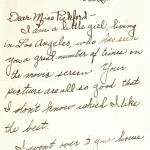 Dear Miss Pickford –
I am a little girl, living
in Los Angeles, who has seen
you a great number of times on
de movie screen. Your
picture are all so good that
I don't know which I like
the best.
I went over to your house